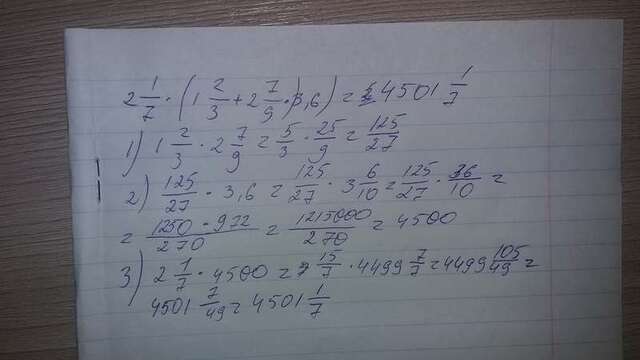 2 1/7 · (1 2/3 + 2 7/9 · 3,6) = 4501 1/7
1) 1 2/3 · 2 7/9 = 5/3 · 25/9 = 125/27
2) 125/27 · 3,6 = 125/27 · 3 6/10 = 125/27 · 36/10 =
= 1250 · 972/270 = 1215000/270 = 4500
3) 2 1/7 · 4500 = 15/7 · 4499 7/7 = 4499 105/49 =
4501 7/49 = 4501 1/7